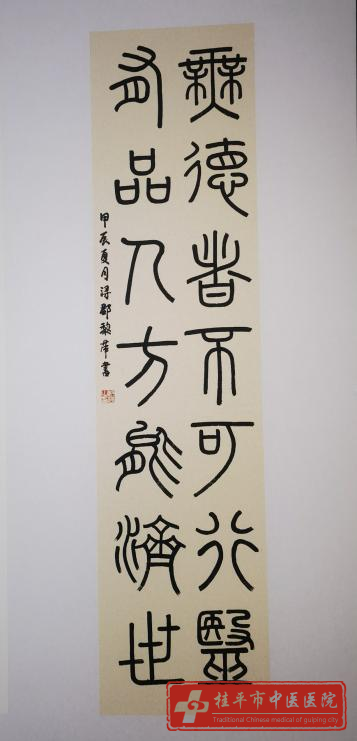 無德者不可行醫
有品人方能濟世
甲辰夏月潯郡黎萍書
桂平市中医医院
Traditional Chinese medical of guiping city